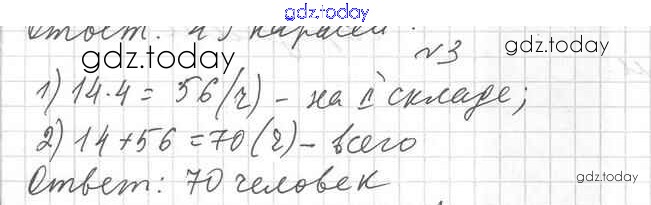 gdz.today
Ответ: 45 карасей.
gdz.today
gdz.today
№3
1) 14·4= 56(ч) – на II складе;
2) 14+56=70(ч) – всего
Ответ: 70 человек
gdz.today